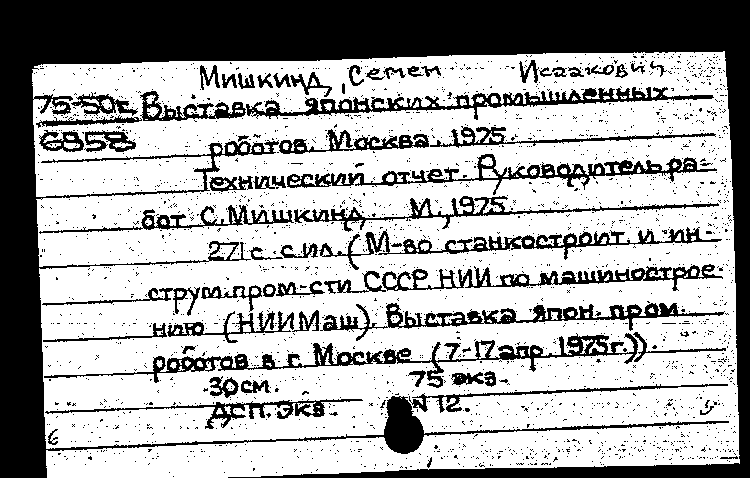 Мишкинд, Семен Исаакович
75-50г. Выставка японских промышленных
6958 роботов. Москва. 1975.
Технический отчет. Руководитель ра-
бот С. Мишкинд. М., 1975
271 с. с ил. (М-во станкостроит. и ин-
струм. пром-сти СССР. НИИ по машинострое-
нию (НИИМаш). Выставка япон. пром.
роботов в г. Москве (7-17 апр. 1975г.)).
30см. 75 экз.
ДСП. Экз. N 12.
6